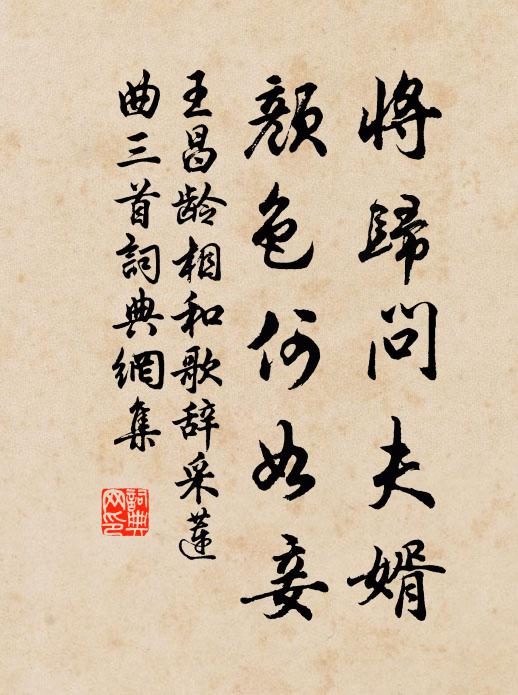 將歸問夫婿
顏色何如妾
王昌龄相和歌辞采蓮
曲三首詞典網集
詞典
网印